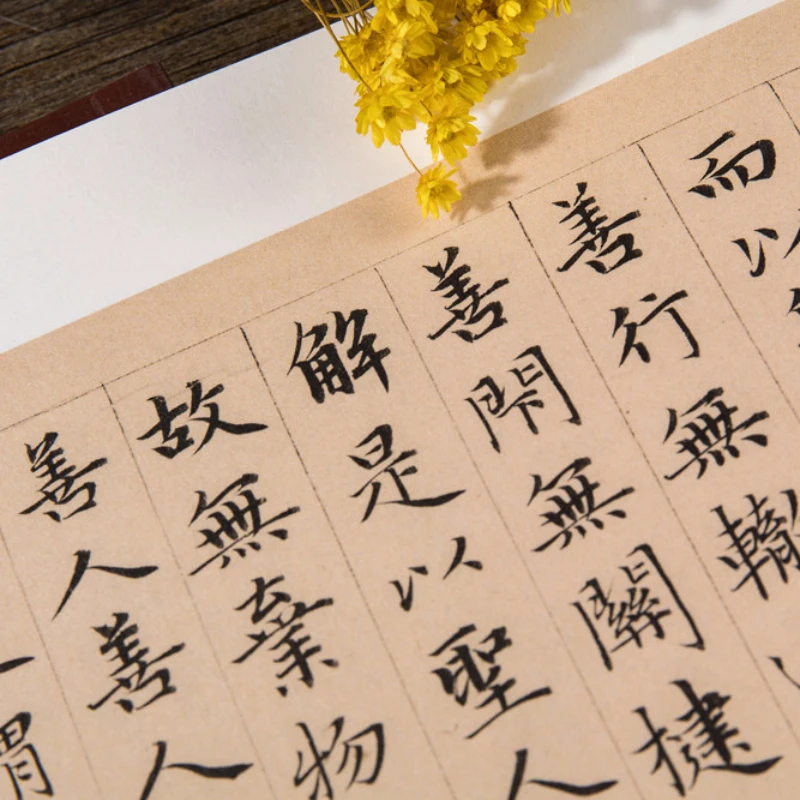 而以
善行無轍
善閇無關楗
解是以聖人
故無棄物
善人善人